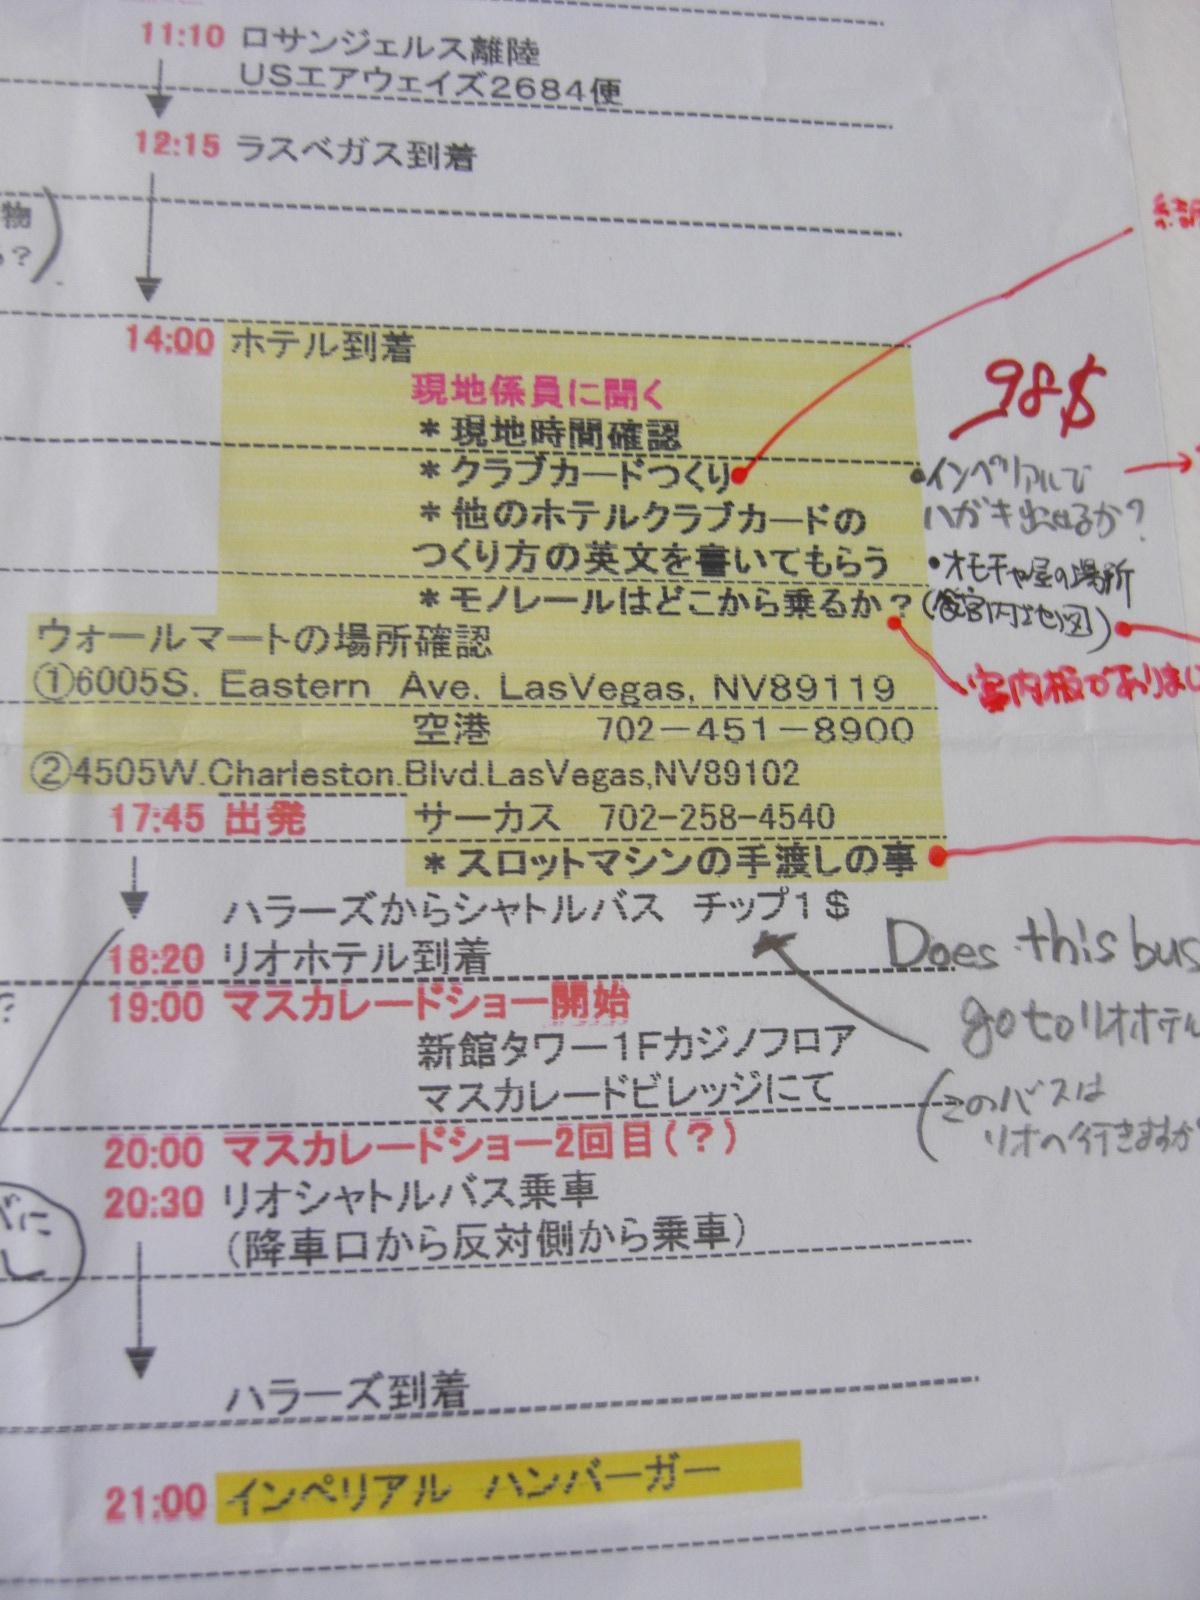 11:10 ロサンジェルス離陸
USエアウェイズ2684便
12:15 ラスベガス到着
物
?
14:00 ホテル到着
現地係員に聞く
*現地時間確認
98$
*クラブカードつくり
・インペリアルで
ハガキ出せるか?
*他のホテルクラブカードの
つくり方の英文を書いてもらう
・オモチャ屋の場所
*モノレールはどこから乗るか?
内地図)
案内板がありまし
ウォールマートの場所確認
①6005S. Eastern Ave. LasVegas, NV89119
空港 702-451-8900
②4505W.Charleston.Blvd.LasVegas,NV89102
17:45 出発 サーカス 702-258-4540
*スロットマシンの手渡しの事
ハラーズからシャトルバス チップ1$
18:20 リオホテル到着
Does this bus
go to リオホテル
(このバスは
リオへ行きますか
19:00 マスカレードショー開始
新館タワー1Fカジノフロア
マスカレードビレッジにて
?
20:00 マスカレードショー2回目(?)
20:30 リオシャトルバス乗車
(降車口から反対側から乗車)
に
し
ハラーズ到着
21:00 インペリアル ハンバーガー